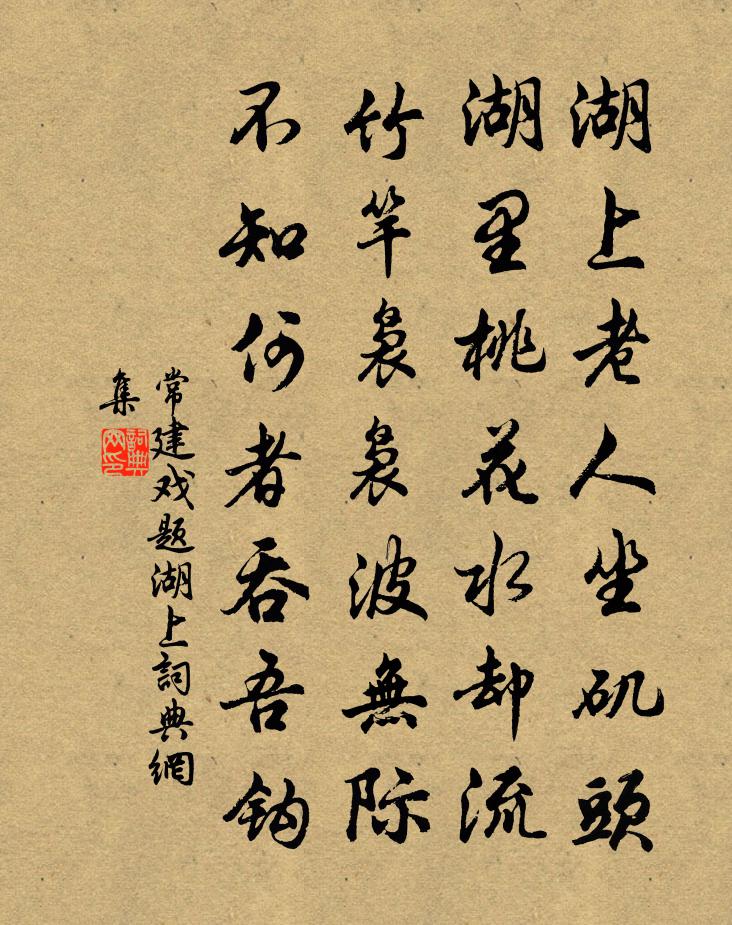 湖上老人坐矶頭
湖里桃花水却流
竹竿袅袅波無际
不知何者吞吾钩
常建戏题湖上詞典網
集
詞典
网印